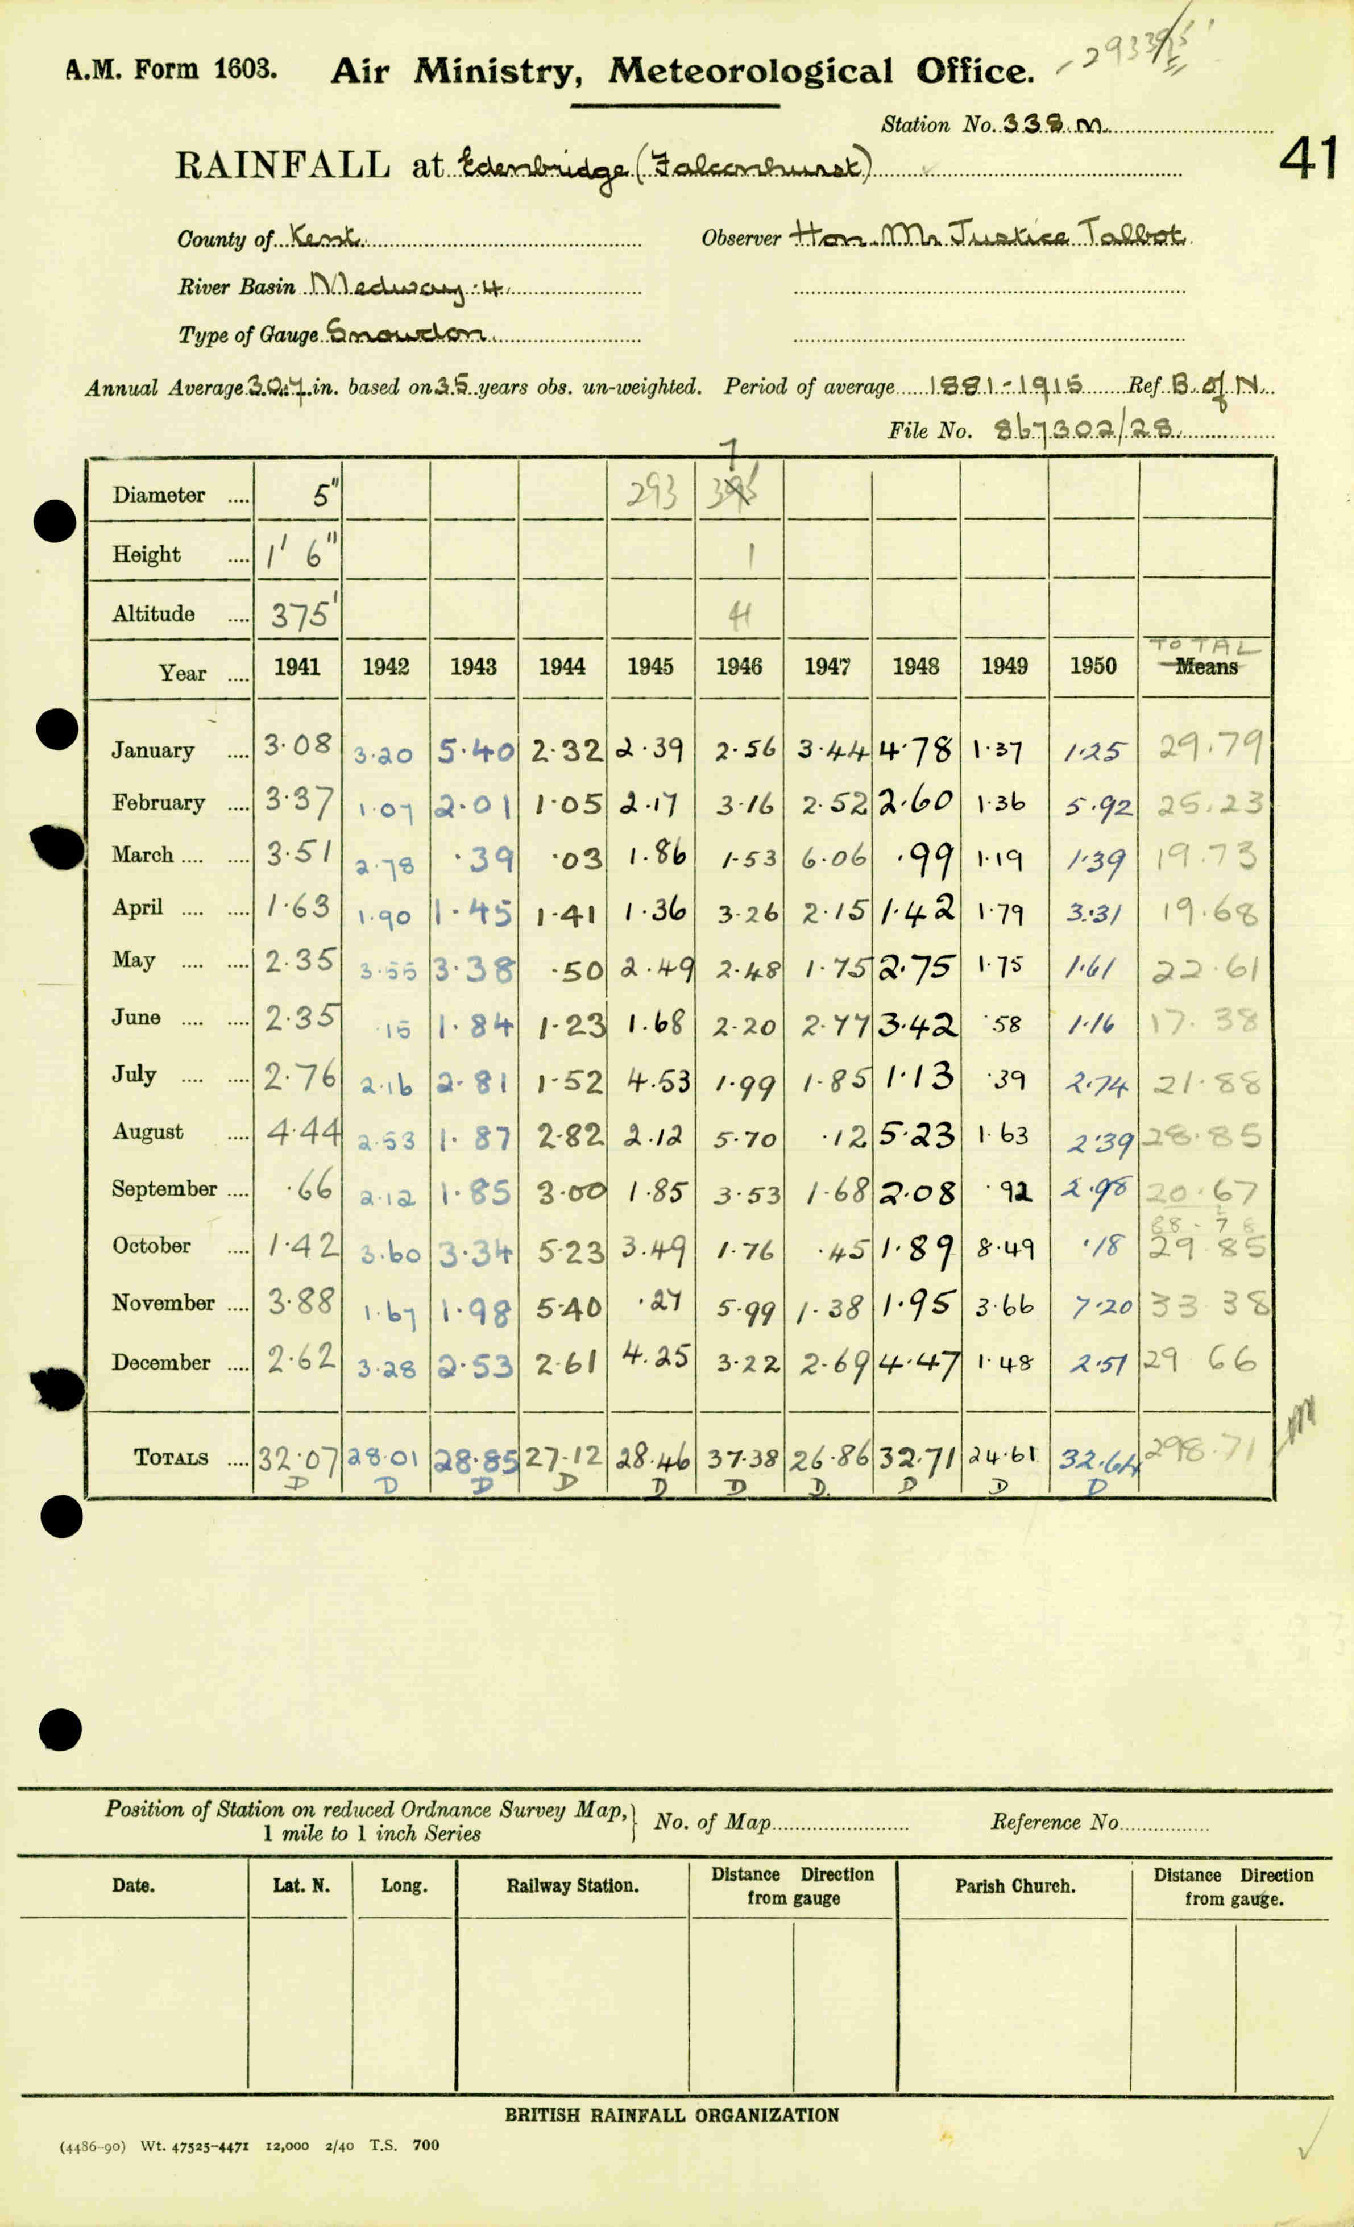 29339/5
A.M. Form 1603. Air Ministry, Meteorological Office.
Station No. 338 M
41
RAINFALL at Edenbridge (Falconhurst)
County of Kent Observer Hon. Mr Justice Talbot
River Basin Medway 4
Type of Gauge Snowdon
Annual Average 30.7 in. based on 35 years obs. un-weighted. Period of average 1881-1915 Ref B. of N.
File No. 867302/28
7
Diameter .... 5" 293 395
Height .... 1' 6" 1
Altitude .... 375' 41
TOTAL
Year .... 1941 1942 1943 1944 1945 1946 1947 1948 1949 1950 Means
January .... 3.08 3.20 5.40 2.32 2.39 2.56 3.44 4.78 1.37 1.25 29.79
February .... 3.37 1.07 2.01 1.05 2.17 3.16 2.52 2.60 1.36 5.92 25.23
March .... .... 3.51 2.78 .39 .03 1.86 1.53 6.06 .99 1.19 1.39 19.73
April .... .... 1.63 1.90 1.45 1.41 1.36 3.26 2.15 1.42 1.79 3.31 19.68
May .... .... 2.35 3.55 3.38 .50 2.49 2.48 1.75 2.75 1.75 1.61 22.61
June .... .... 2.35 .15 1.84 1.23 1.68 2.20 2.77 3.42 .58 1.16 17.38
July .... .... 2.76 2.16 2.81 1.52 4.53 1.99 1.85 1.13 .39 2.74 21.88
August .... 4.44 2.53 1.87 2.82 2.12 5.70 .12 5.23 1.63 2.39 28.85
September .... .66 2.12 1.85 3.00 1.85 3.53 1.68 2.08 .92 2.98 20.67
88.78
October .... 1.42 3.60 3.34 5.23 3.49 1.76 .45 1.89 8.49 .18 29.85
November .... 3.88 1.67 1.98 5.40 .27 5.99 1.38 1.95 3.66 7.20 33 38
December .... 2.62 3.28 2.53 2.61 4.25 3.22 2.69 4.47 1.48 2.51 29 66
TOTALS .... 32.07 28.01 28.85 27.12 28.46 37.38 26.86 32.71 24.61 32.64 298.71
D D D D D D D D D D
Position of Station on reduced Ordnance Survey Map, } No. of Map Reference No.
1 mile to 1 inch Series
Date. Lat. N. Long. Railway Station. Distance Direction from gauge Parish Church. Distance Direction from gauge.
BRITISH RAINFALL ORGANIZATION
(4486-90) Wt. 47525-4471 12,000 2/40 T.S. 700